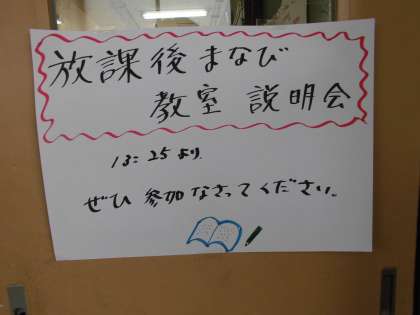 放課後まなび
教室 説明会
13:25より
ぜひ 参加 なさってください。